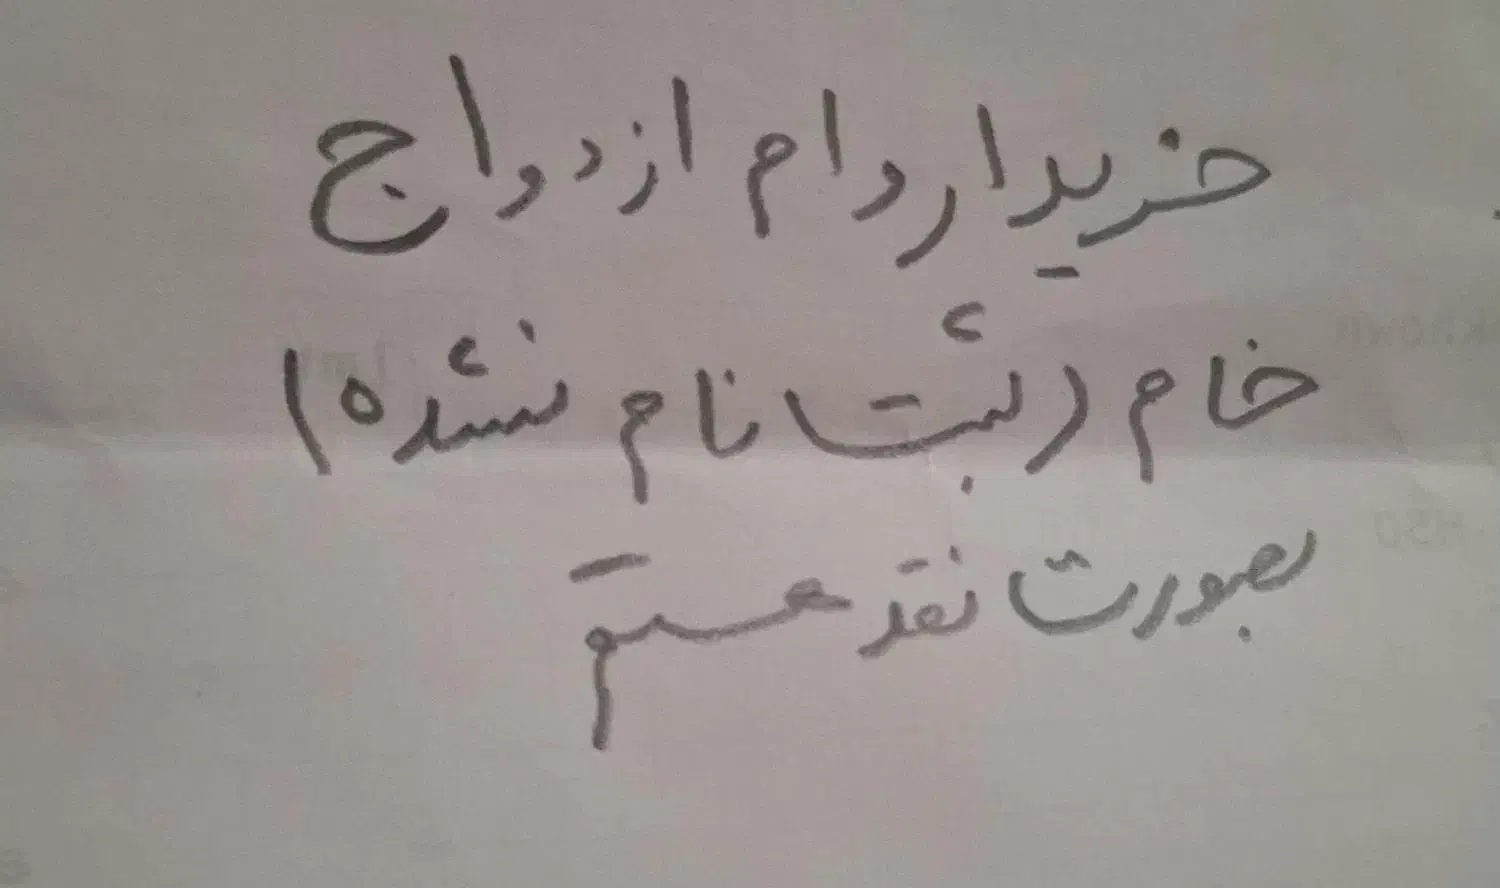 خریدار وام ازدواج
خام (ثبت نام نشده)
بصورت نقد هستم